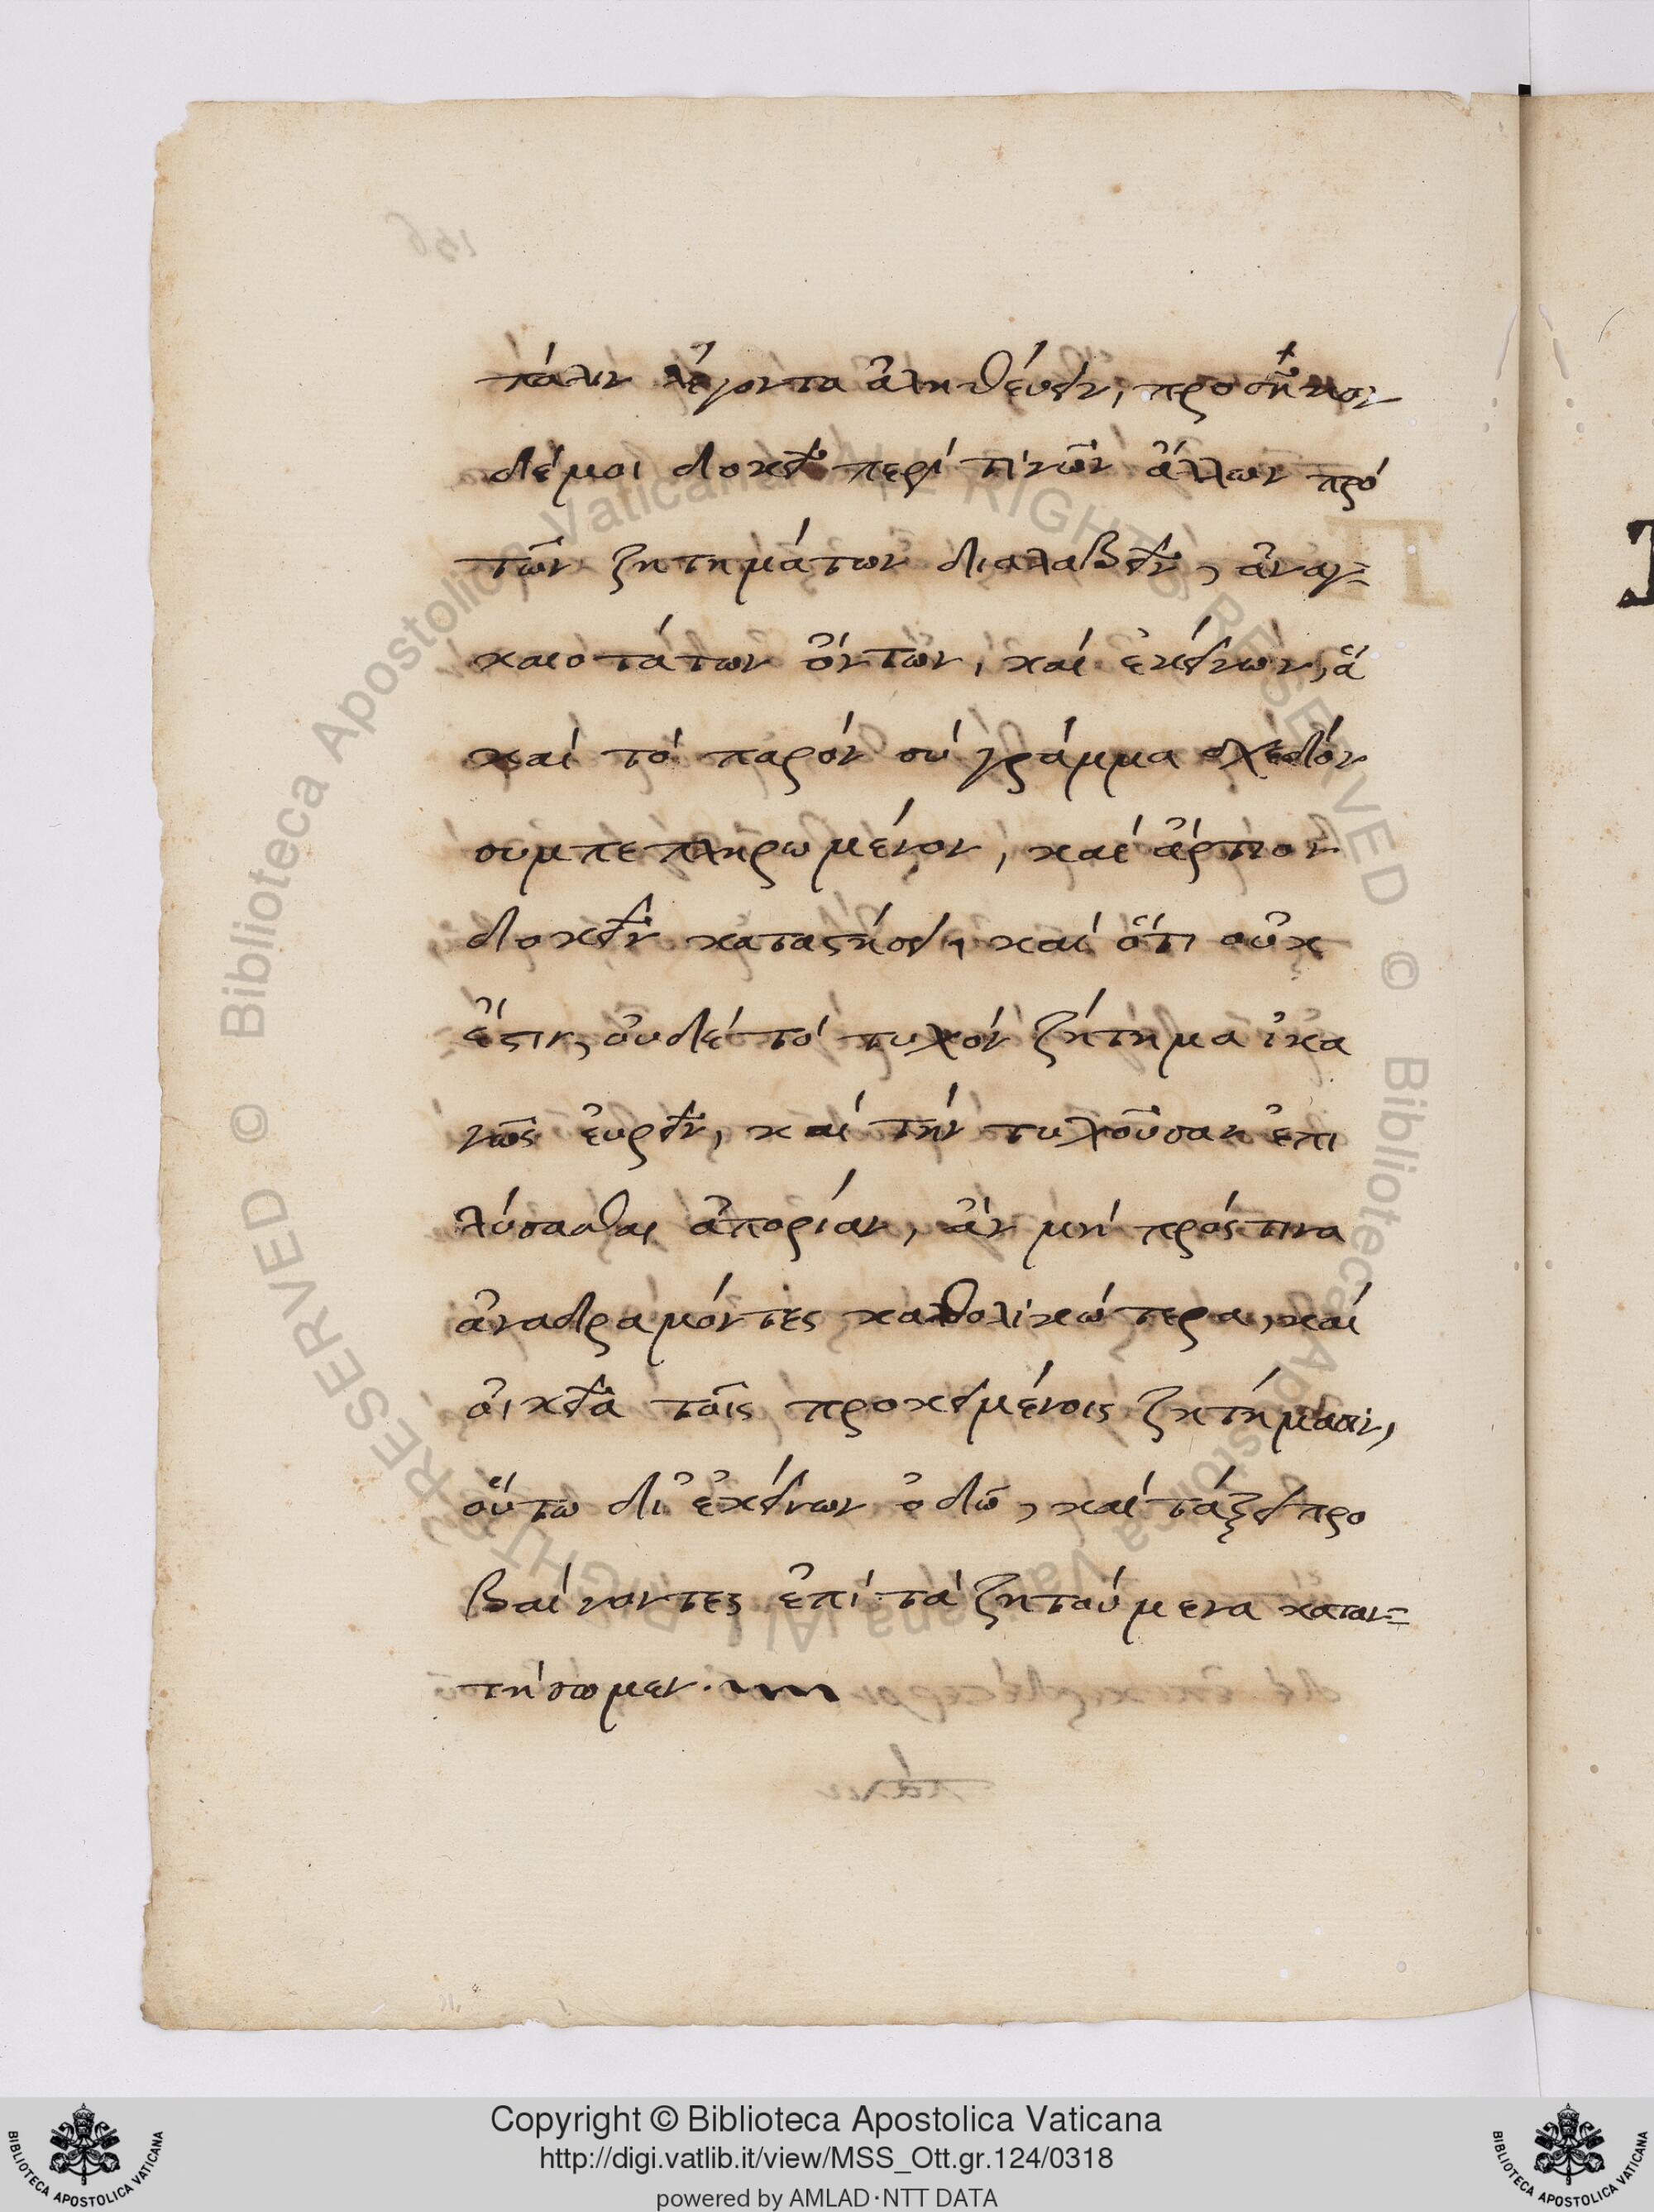 πάλιν λέγοντα ἀληθέυειν, προσῆκον
δέμοι δοκεῖ περὶ τινῶν ἄλλων πρό
τῶν ζητημάτων διαλαβεῖν, ἀναγ=
καιοτάτων ὄντων, καί ἐκείνων, ἅ
καί τό παρόν σύγράμμα σχεδόν
συμπεπληρωμένον, καί ἄρτιον
δοκεῖν καταστήσει, καί ὅτι οὐκ
ἔστιν, ὀυδέ τό τυχόν ζήτημα ἱκα
νῶς ἑυρεῖν, καί τήν τυχοῦσαν ἐπι
λύσασθαι ἀπορίαν, ἄν μή πρός τινα
ἀναδραμόντες καθολικώτερα, καί
ὀικεῖα τοῖς προκειμένοις ζητήμασιν,
ὅυτω δι᾽ ἐκείνων ὁδῶ, καί τάξει προ
βαίνοντες ἐπί τά ζητούμενα καταν=
τήσωμεν.
Biblioteca Apostolica Vaticana ALL RIGHTS RESERVED © Biblioteca Apostolica Vaticana ALL RIGHTS RESERVED ©
Copyright © Biblioteca Apostolica Vaticana
http://digi.vatlib.it/view/MSS_Ott.gr.124/0318
powered by AMLAD·NTT DATA
BIBLIOTECA APOSTOLICA VATICANA
BIBLIOTECA APOSTOLICA VATICANA